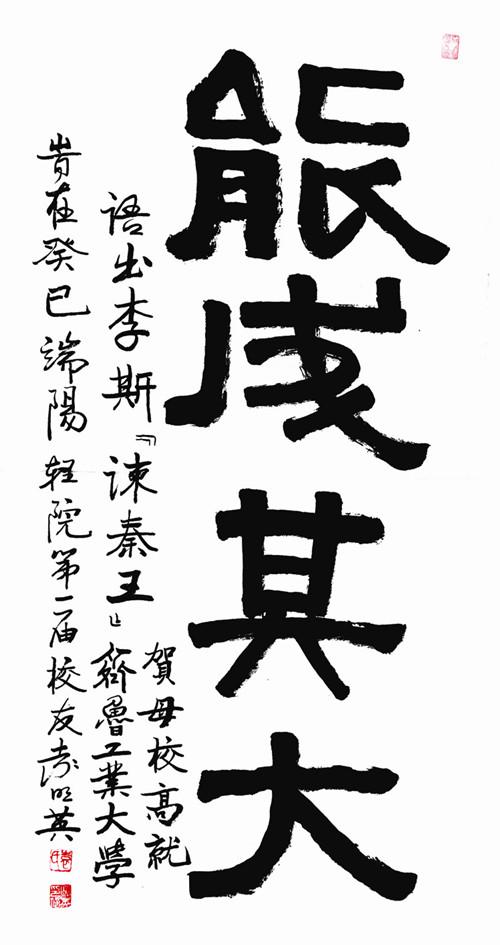 能成其大
语出李斯『谏秦王』
賀母校高就
齊魯工業大學
旹在癸巳端陽 轻院第二届校友袁明英